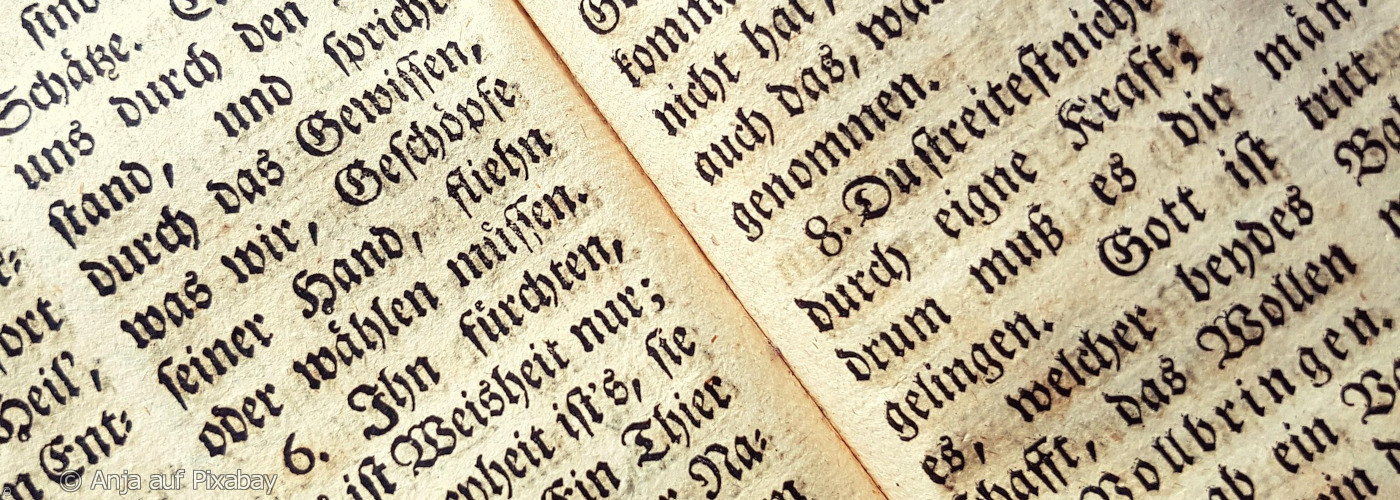 sind
Schätze.
uns durch den
stand, und spricht
durch das Gewissen,
was wir, Geschöpfe
seiner Hand, fliehn
oder wählen müssen.
6. Ihn fürchten,
ist Weisheit nur;
ist's, sie
Ein Thier
Na-
Heil',
Ent-
kommt
nicht hat
auch das, was
genommen.
8. Du streitest nicht
durch eigne Kraft;
drum muß es dir
gelingen. Gott ist
es, welcher beydes
schafft, das Wollen
Vollbringen.
ein
tritt
© Anja auf Pixabay